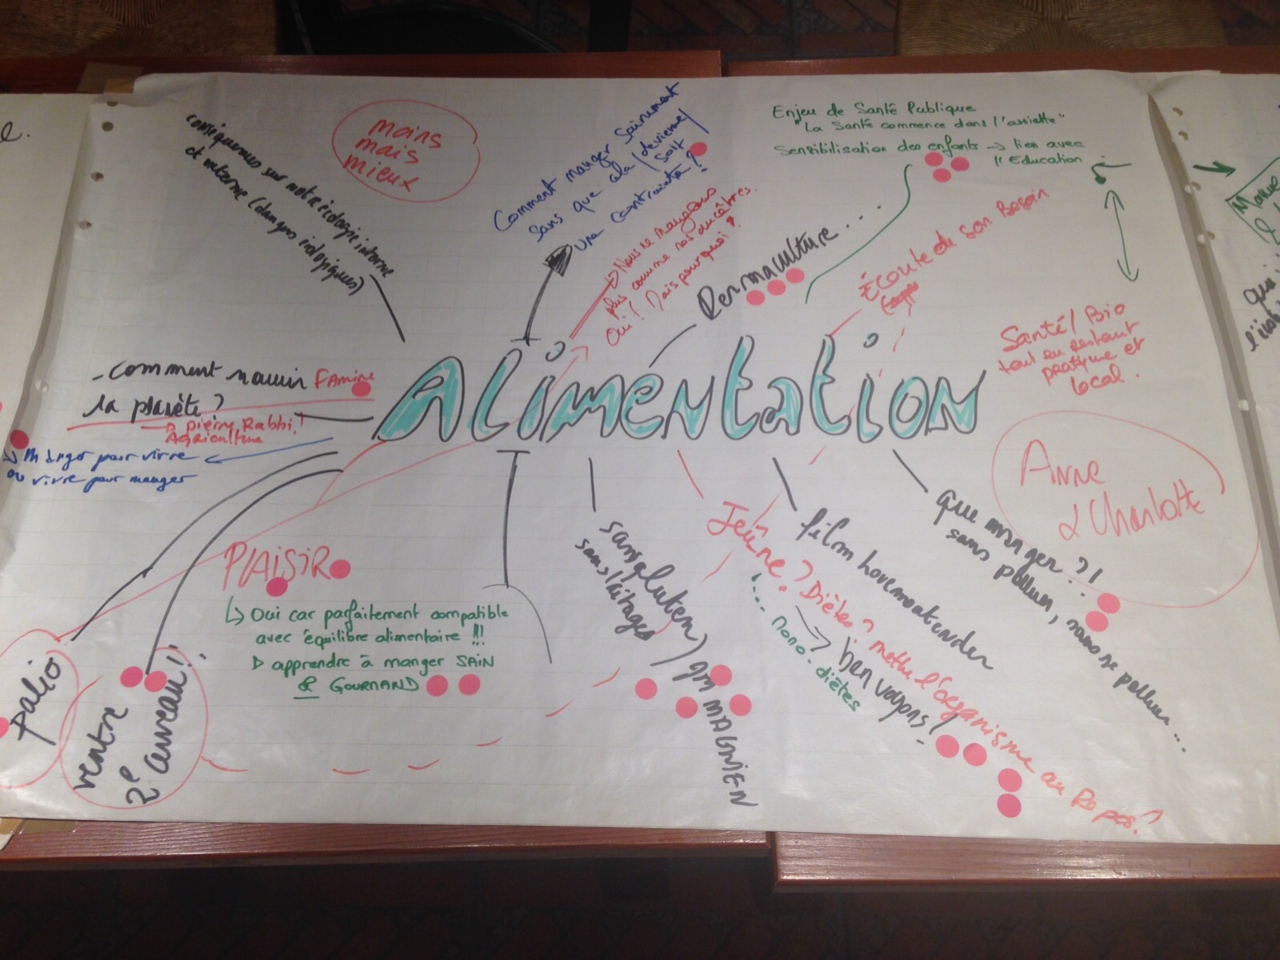 e.
moins
mais
mieux
conséquences sur notre écologie interne
et externe (dangers écologiques)
Comment manger sainement
sans que cela devienne/
soit
une contrainte ?
↳ Nous ne mangeons
pas comme nos ancêtres.
Oui ! Mais pourquoi ?
Permaculture....
Enjeu de Santé Publique
"La Santé commence dans l'assiette"
Sensibilisation des enfants → lien avec
l'Education
Écoute de son Besoin
Santé/Bio
tout en restant
pratique et
local.
qui
Alimentation
- comment nourrir Famine
la planète ?
→ pierre Rabbi !
Agriculture
↳ Manger pour vivre
ou vivre pour manger
Anne
& Charlotte
PLAISIR
↳ Oui car parfaitement compatible
avec équilibre alimentaire !!!
▷ apprendre à manger SAIN
& GOURMAND
paléo
ventre
2e cerveau !!
sans gluten)
sans laitages
gm MAGNIEN
Jeûne ? Diètes ? mettre l'organisme au Repos ?
→ ben voyons !
... mono-diètes
film hovermentunder
que manger ?!
sans polluer, sans se polluer...